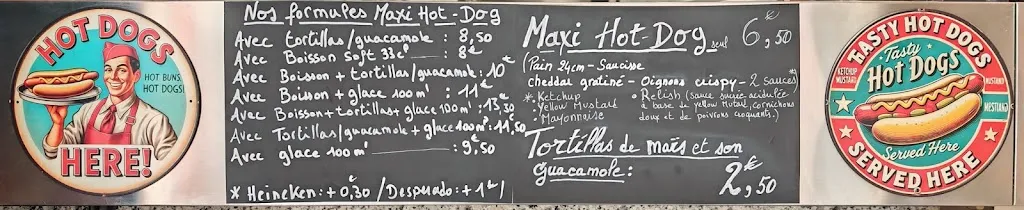 HOT DOGS
HOT BUNS,
HOT DOGS!
HERE!
Nos formules Maxi Hot-Dog
Avec tortillas/guacamole : 8,50
Avec Boisson Soft 33cl : 8€
Avec Boisson + tortillas/guacamole : 10€
Avec Boisson + glace 100ml : 11€
Avec Boisson + tortillas + glace 100ml : 13,50
Avec Tortillas/guacamole + glace 100ml : 11,50
Avec glace 100ml : 9,50
* Heineken : + 0,30 / Desperado : + 1€ /
Maxi Hot Dog seul 6€,50
(Pain 24cm - Saucisse
cheddar gratiné - Oignons crispy - 2 sauces*)
* Ketchup
• Yellow Mustard
• Mayonnaise
• Relish (sauce sucrée acidulée
à base de yellow mutard, cornichons
doux et de poivrons croquants.)
Tortillas de maïs et son
guacamole : 2€,50
TASTY HOT DOGS
KETCHUP
MUSTARD
Tasty
Hot Dogs
MUSTARD
Served Here
SERVED HERE